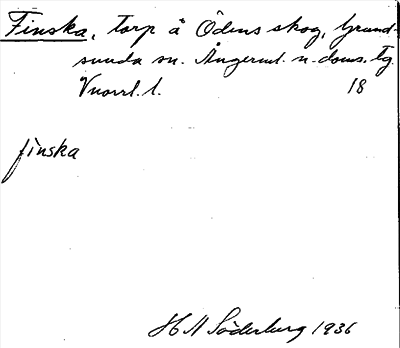 Finska, torp å Ödens skog, Grund-
sunda sn. Ångerml. n. doms. tg.
Vnorrl. l. 18
finska
H A Söderberg 1936